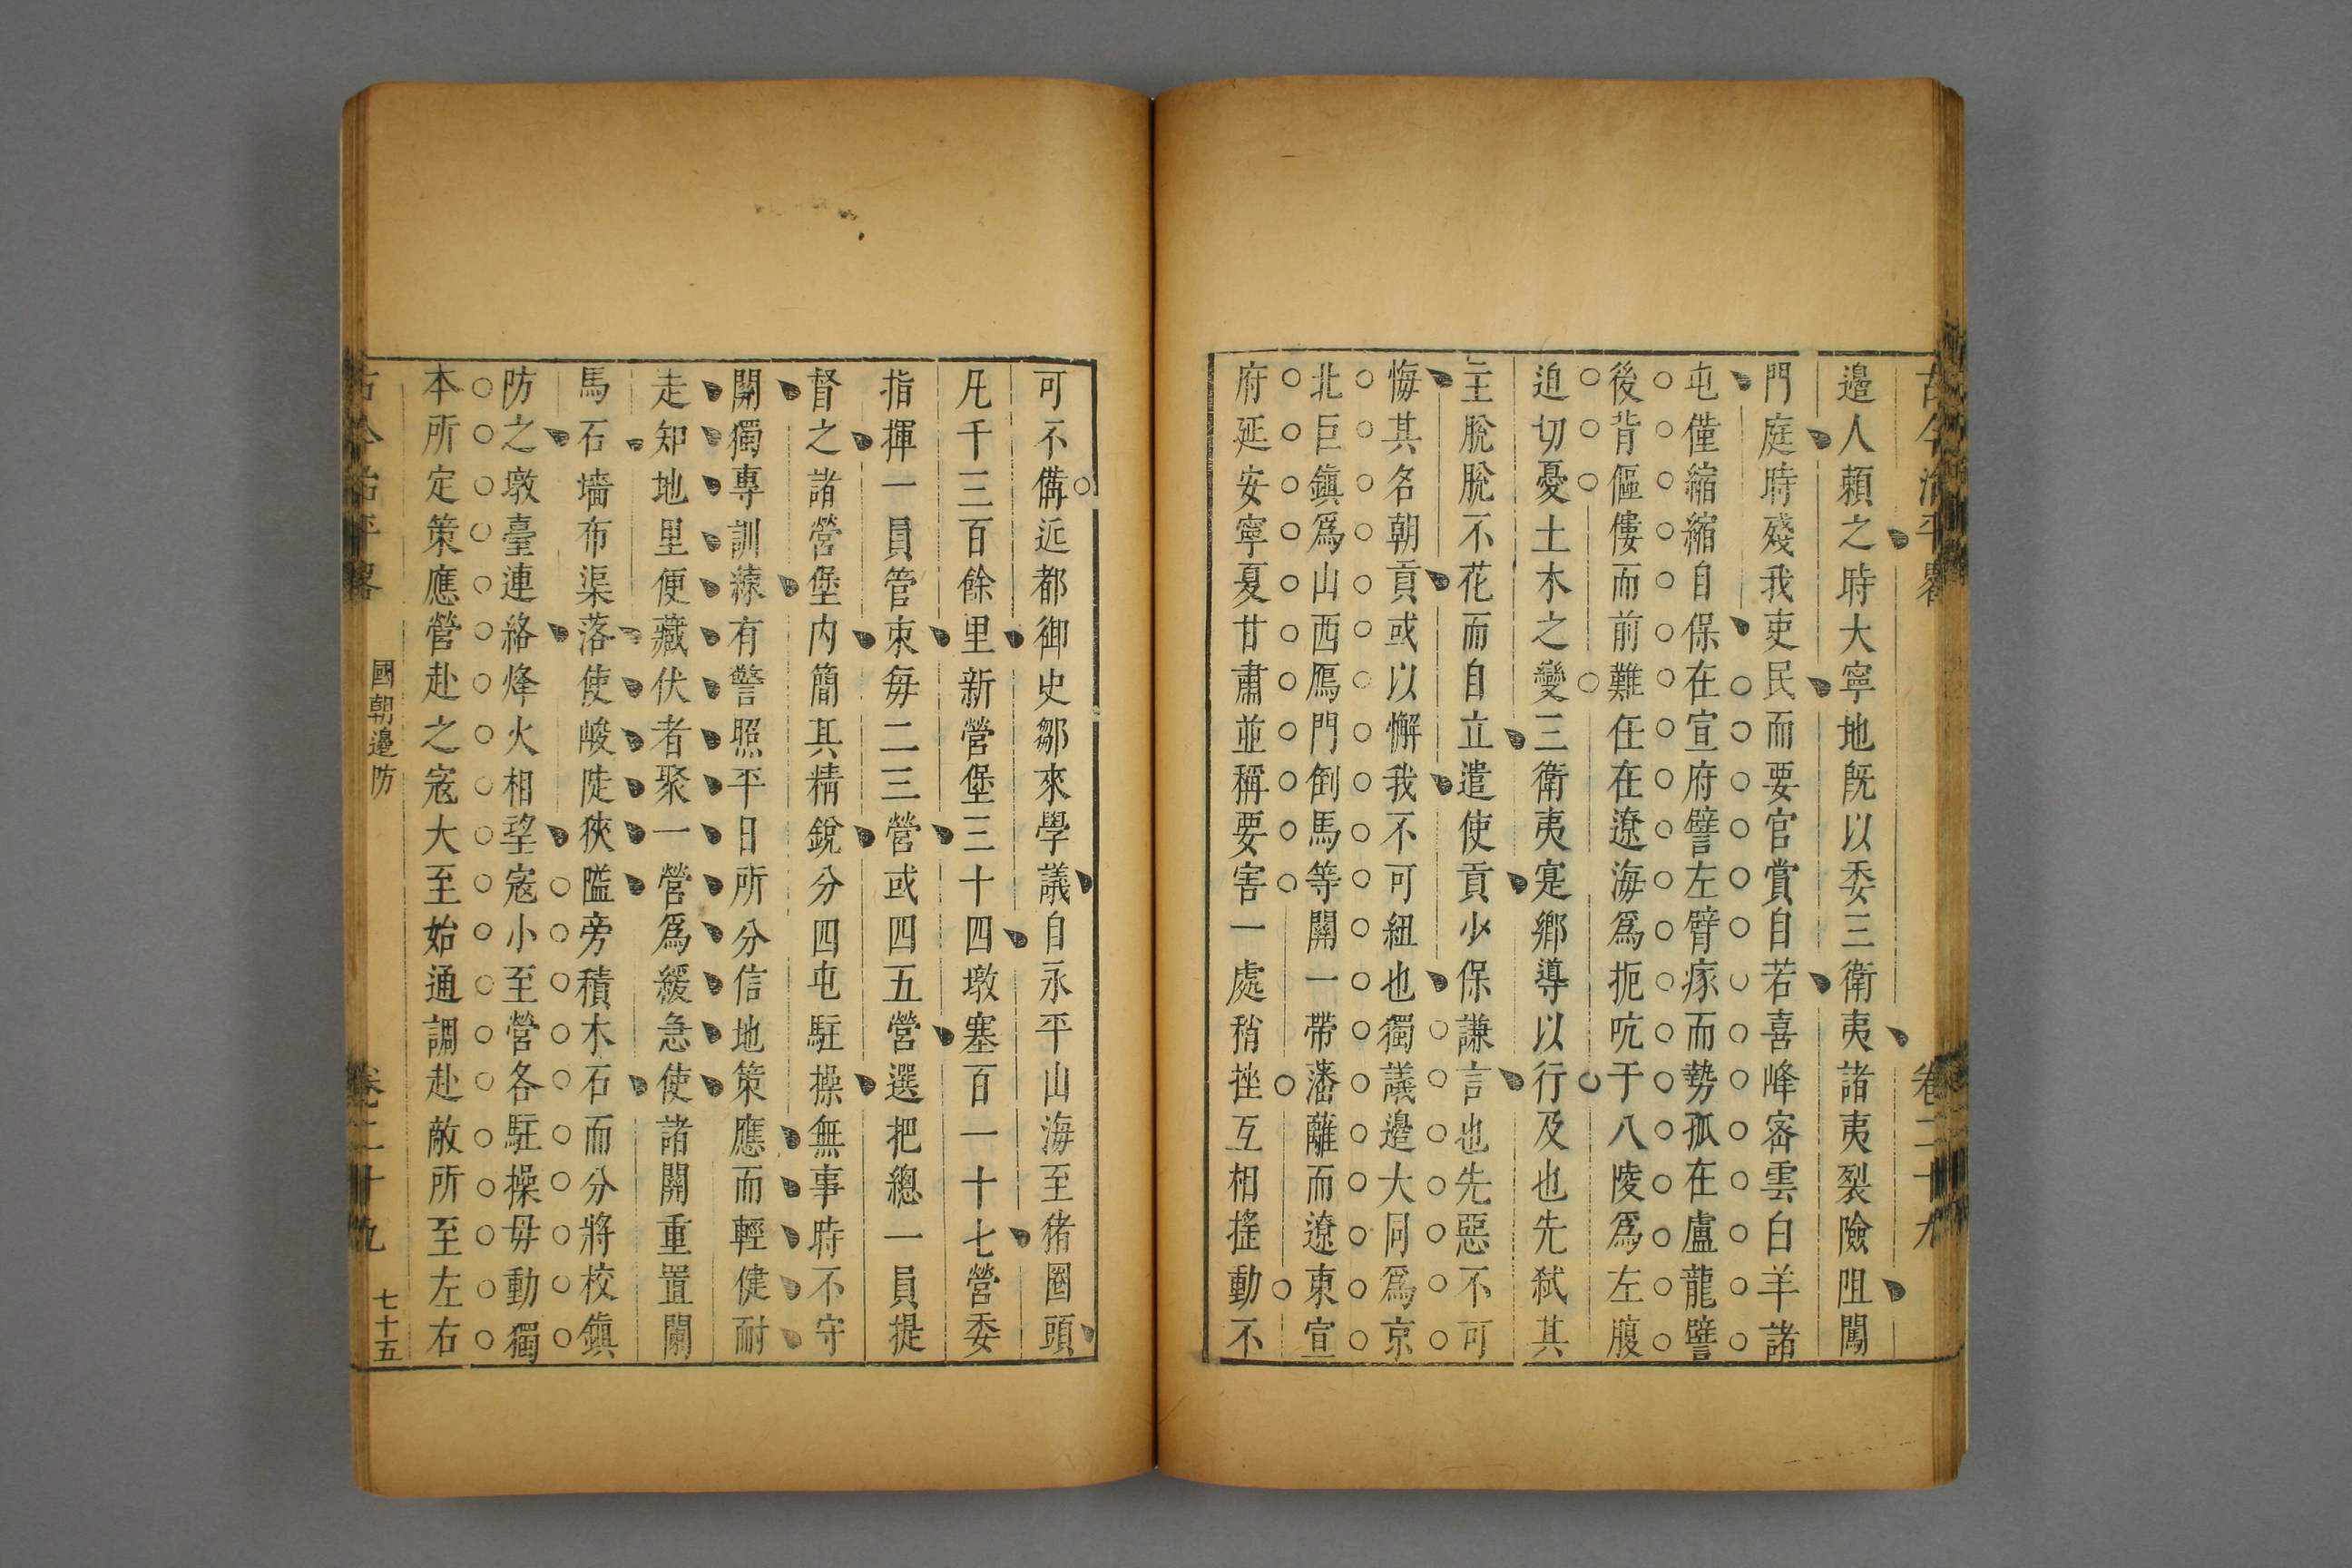 古今治平畧
卷二十九
邉人頼之時大寧地旣以委三衛夷諸夷裂險阻闖
門庭時殘我吏民而要官賞自若喜峰宻雲白羊諸
屯僅縮縮自保在宣府譬左臂瘃而勢孤在盧龍譬
後背傴僂而前難任在遼海爲扼吭于八陵爲左腹
迫切憂土木之變三衛夷寔鄉導以行及也先弑其
主脫脫不花而自立遣使貢少保謙言也先惡不可
悔其名朝貢或以懈我不可紐也獨議邉大同爲京
北巨鎮爲山西鴈門倒馬等關一帶藩離而遼東宣
府延安寧夏甘肅並稱要害一處稍挫互相搖動不
可不備近都御史鄒來學議自永平山海至猪圈頭
凡千三百餘里新營堡三十四墩塞百一十七營委
指揮一員管束毎二三營或四五營選把總一員提
督之諸營堡内簡其精銳分四屯駐操無事時不守
關獨專訓練有警照平日所分信地策應而輕健耐
走知地里便藏伏者聚一營爲緩急使諸關重置闌
馬石墻布渠落使峻陡狹隘旁積木石而分將校鎮
防之墩臺連絡烽火相望宼小至營各駐操毋動獨
本所定策應營赴之宼大至始通調赴敵所至左右
古今治平畧
國朝邉防
卷二十九
七十五